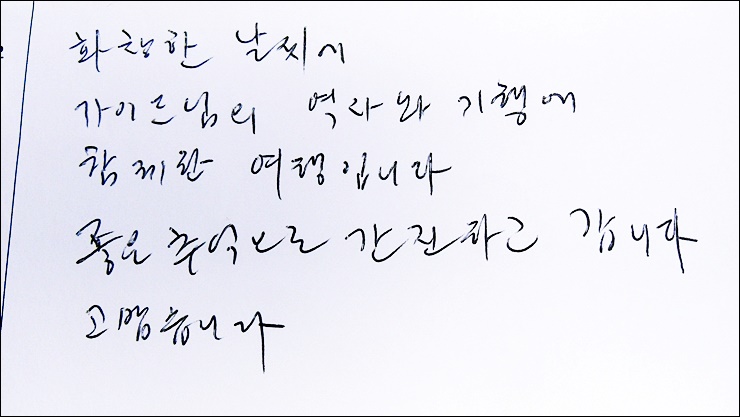 화창한 날씨에
가이드님의 역사와 기행에
함께한 여행입니다
좋은 추억으로 간직하고 갑니다
고맙습니다